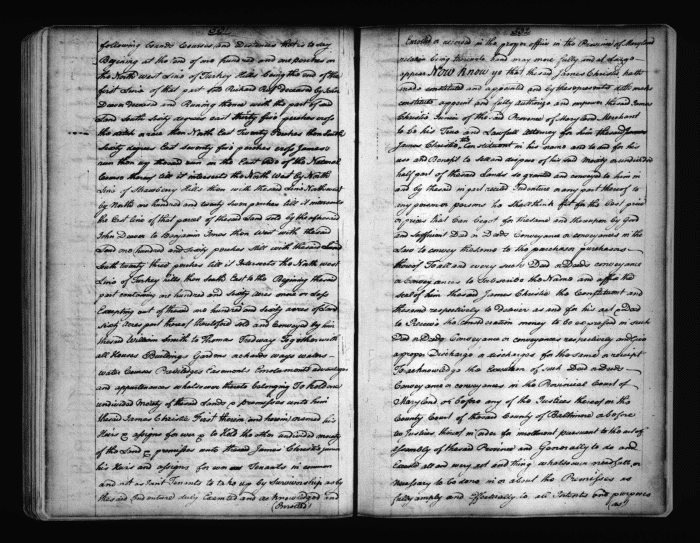 following Courses and Distances that is to say
Begining at the end of one hundred and one perches on
the North west Line of Turkey Hills being the end of the
first Line of that part the Richard Rest Deceased by John
Dawn Deceased and Runing thence with the part of said
Land South sixty degrees east thirty five perches cross
the then North East Twenty Perches then South
Sixty degrees East seventy five perches
run then up the said run on the East side of the Natural
Course thereof till it intersects the North West by North
Line of Strawberry Hills then with the said Line Northwest
by North one hundred and twenty seven perches till it intersects
the East Line of that parcel of the said Land by the aforesaid
John Dawn to Benjamin Jones then West with the said
Land one hundred and sixty perches still with the said Land
South twenty three perches till it Intersects the North west
Line of Turkey Hills then South East to the Begining the said
part containing one hundred and sixty acres more or less
Excepting out of the said one hundred and sixty acres of Land
sixty acres part thereof heretofore sold and Conveyed by him
the said William Smith to Thomas Tredway Together with
all Houses Buildings Gardens orchards ways waters
water Courses Priviledges Easments Emoluments advantages
and appurtenances whatsoever thereto belonging To hold one
undivided Moiety of the said Lands & premisses unto him
the said James Christie First therein and herein named his
Heirs & assigns for ever & to Hold the other undivided moiety
of the Land & premisses unto the said James Christie junior
his Heirs and assigns for ever as Tenants in common
and not as Joint Tenants to take up by Survivorship as by
the said Indenture duly Executed and acknowledged and
(Enrolled)
Enrolled or recorded in the proper office in the Province of Maryland
relation being thereunto had may more fully and at Large
appear Now Know ye that the said James Christie hath
made constituted and appointed and by these presents doth make
constitute appoint and fully authorize and impower the said James
Christie Junior of the said Province of Maryland Merchant
to be his True and Lawfull attorney for him the said James
James Christie the Constituent in his name and to and for his
use and Benefit to sell and dispose of his said Moiety or undivided
half part of the said Lands so granted and conveyed to him in
and by the said in part recited Indenture or any part thereof to
any person or persons he shall think fit for the best price
or prices that can be got for the same and thereupon by Good
and Sufficient Deed or Deeds Conveyance or conveyances in the
Law to convey the same to the purchaser purchasers
thereof To all and every such Deed or Deeds conveyance
or Conveyances to Subscribe the Name and affix the
seal of him the said James Christie the Constituent and
the said respectively to Deliver as and for his act & Deed
to Receive the Consideration money to be expressed in such
Deed or Deeds Conveyance or conveyances respectively and give
a proper Discharge or discharges for the same or receipt
To acknowledge the Execution of such Deed or Deeds
Conveyance or conveyances in the Provincial Court of
Maryland or before any of the Justices thereof or the
County Court of the said County of Baltimore or before
two Justices thereof in order for enrollment pursuant to the act of
assembly of the said Province and Generally to do and
Execute all and every act and thing whatsoever needfull or
necessary to be done in or about the Premisses as
fully amply and Effectually to all Intents and purposes
(as)